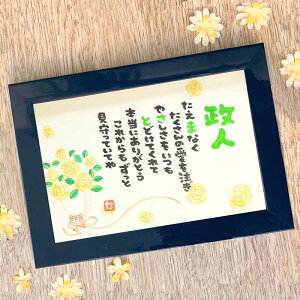 政人
たえまなく
たくさんの愛を注ぎ
やさしさをいつも
とどけてくれて
本当にありがとう
これからもずっと
見守っていてや